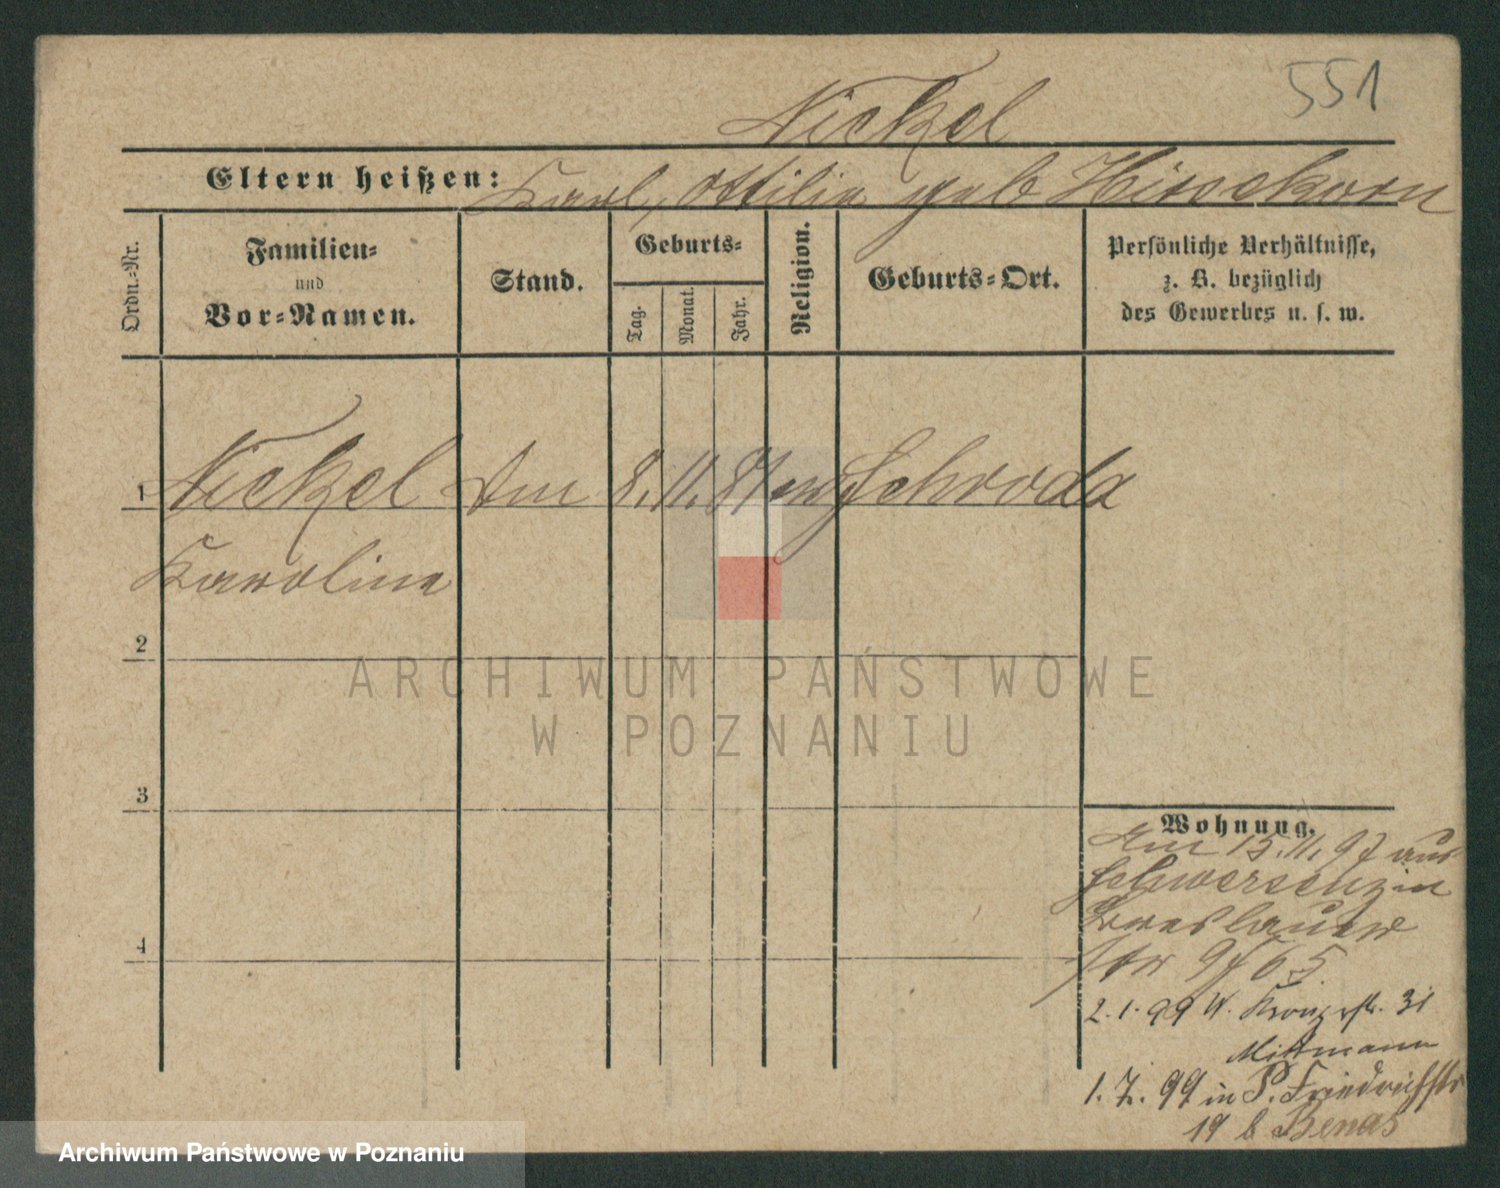 551
Nickel
Eltern heißen: Karl, Ottilie geb Hirsekorn
Ordn.-Nr.
Familien-
und
Vor-Namen.
Stand.
Geburts-
Tag.
Monat.
Jahr.
Religion.
Geburts-Ort.
Persönliche Verhältnisse,
z. B. bezüglich
des Gewerbes u. s. w.
1 Nickel 8. 11. 81 evg Schroda
Karoline
2
3
4
Wohnung.
Am 15.11.97 aus
Schwersenz in
Breslauer
str 9
2.1.99 31
Mittmann
1.7.99 in P. Friedrichstr
19 b Benas
ARCHIWUM PAŃSTWOWE
W POZNANIU
Archiwum Państwowe w Poznaniu